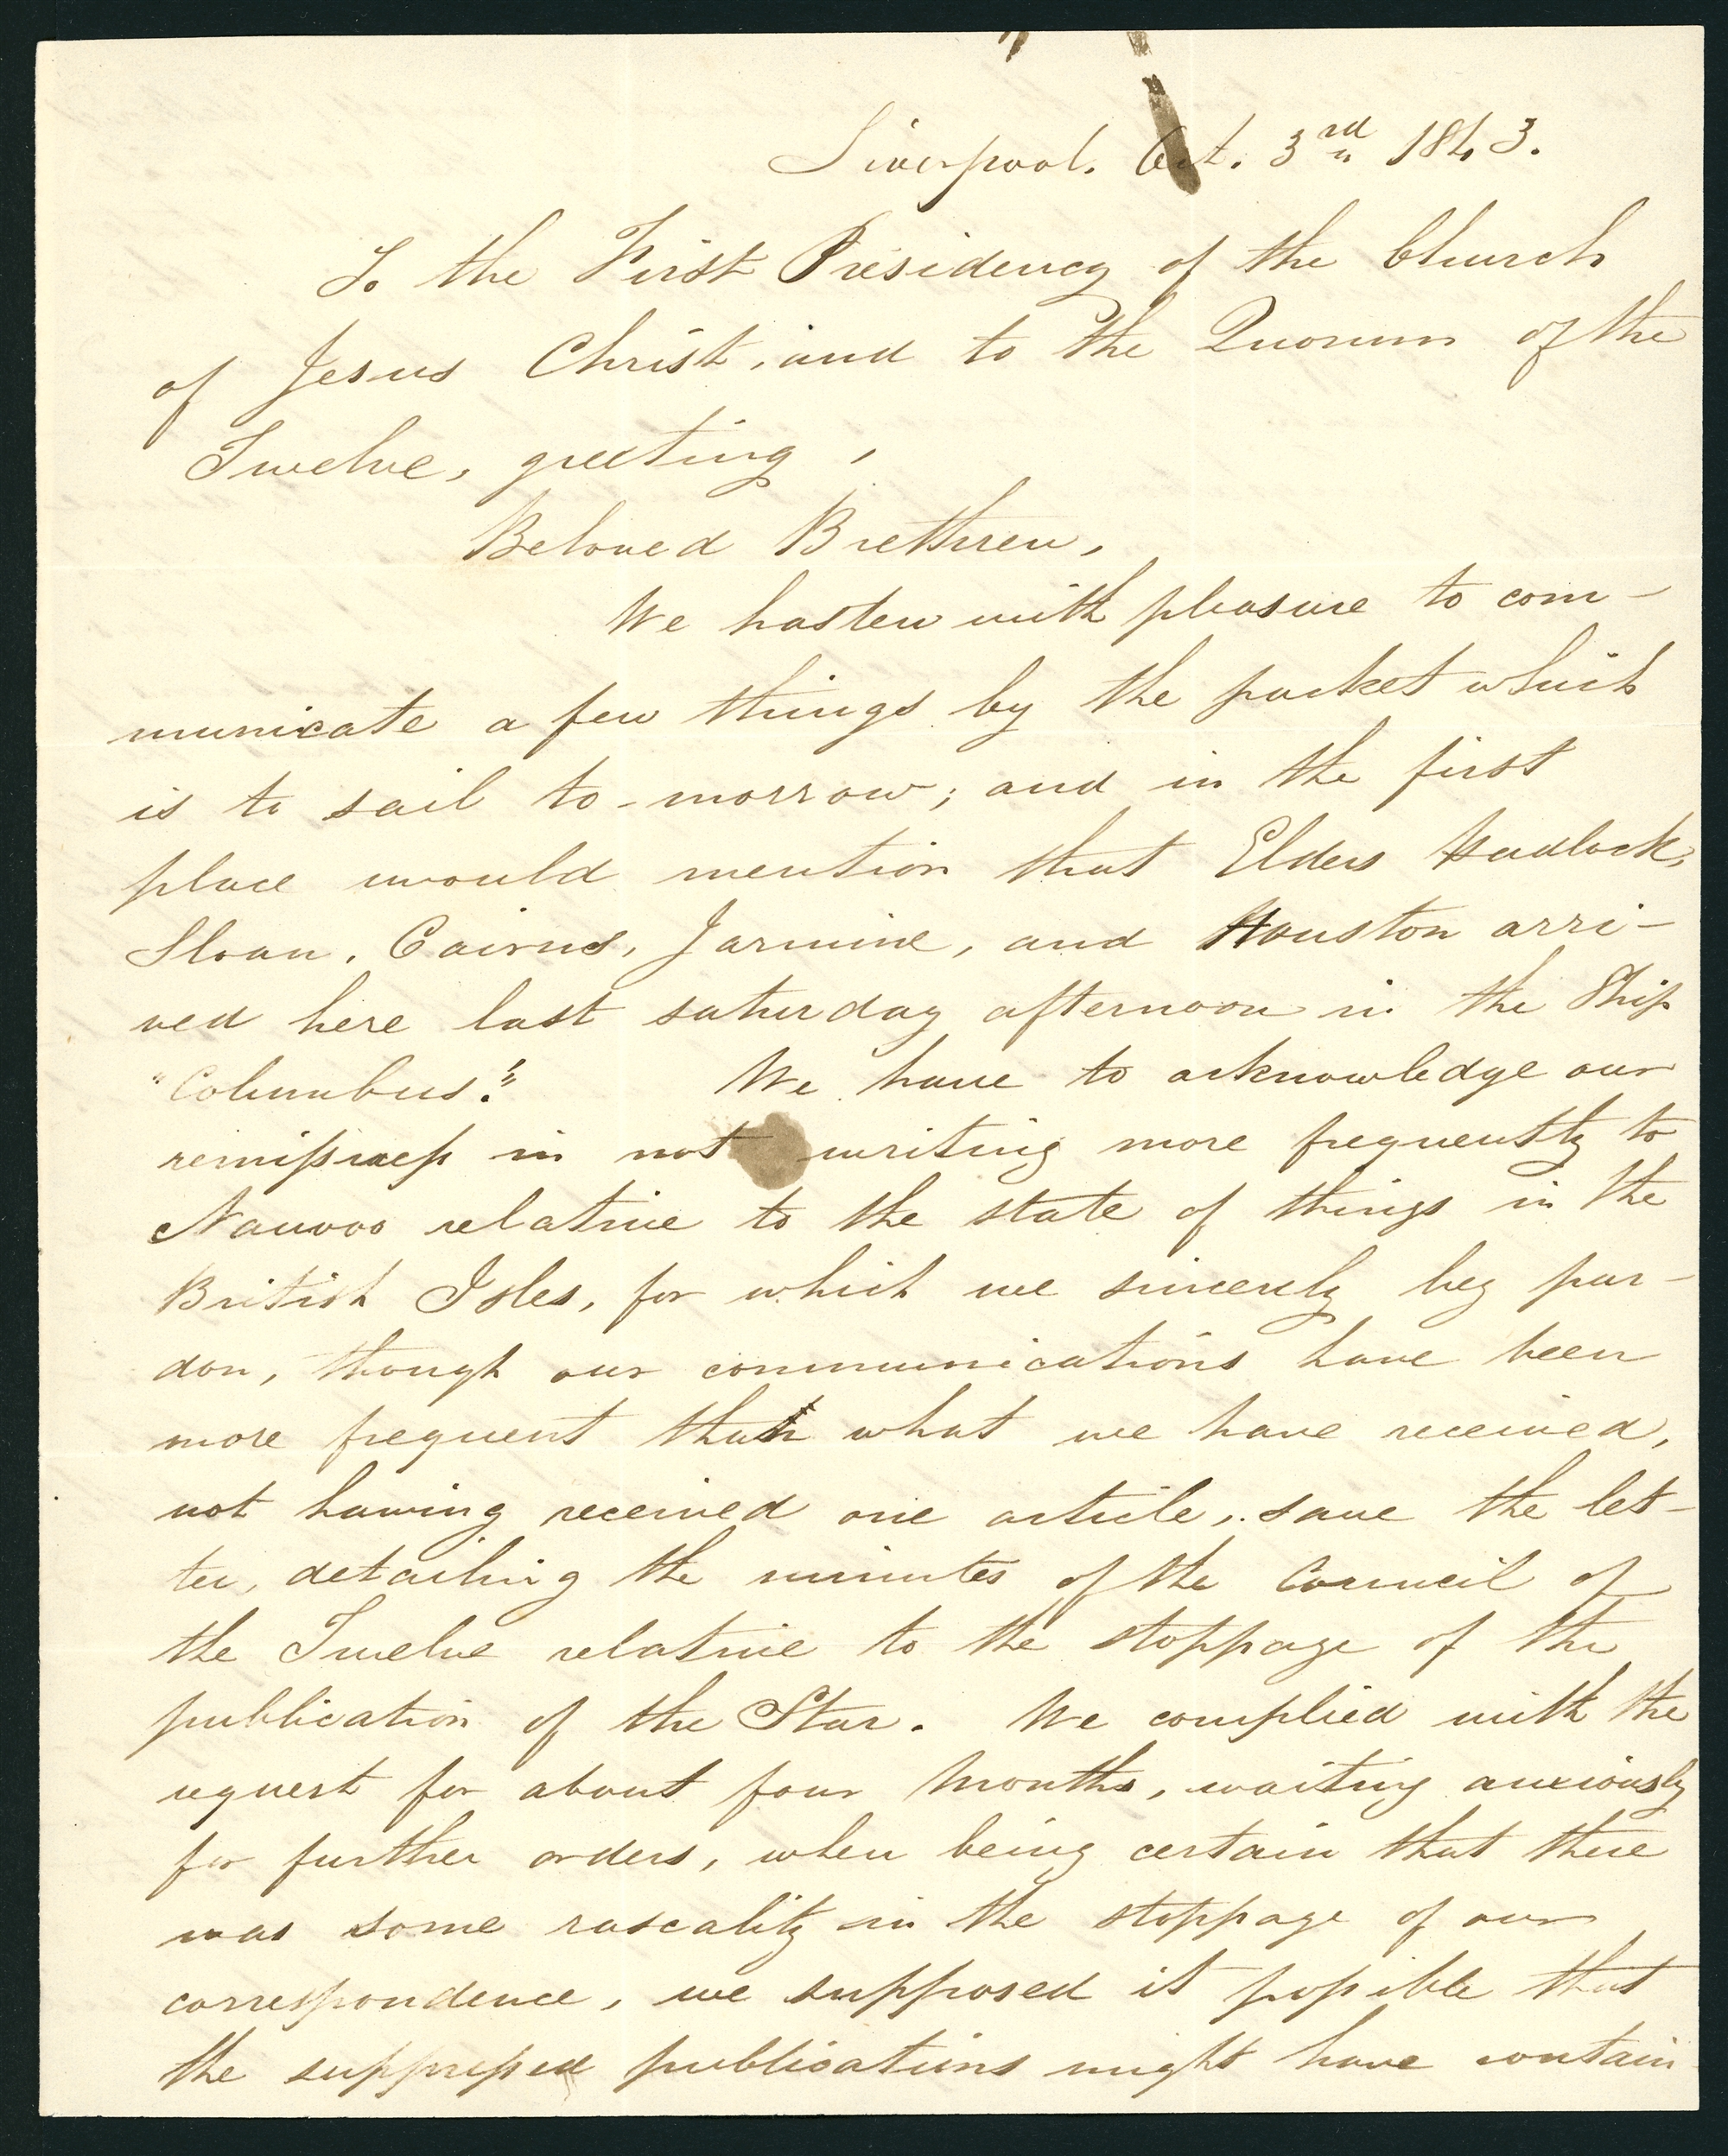 Liverpool. Oct. 3rd 1843.
To the First Presidency of the Church
of Jesus Christ, and to the Quorum of the
Twelve, greeting,
Beloved Brethren,
We hasten with pleasure to com-
municate a few things by the packet which
is to sail to-morrow; and in the first
place would mention that Elders Hedlock,
Sloan, Cairns, Jarmine, and Houston arri-
ved here last saturday afternoon in the Ship
"Columbus." We have to acknowledge our
remissness in not writing more frequently to
Nauvoo relative to the state of things in the
British Isles, for which we sincerely beg par-
don, though our communications have been
more frequent than what we have received,
not having received one article, save the let-
ter, detailing the minutes of the Council of
the Twelve relative to the stoppage of the
publication of the Star. We complied with the
request for about four Months, waiting anxiously
for further orders, when being certain that there
was some rascality in the stoppage of our
correspondence, we supposed it possible that
the suppressed publications might have contain